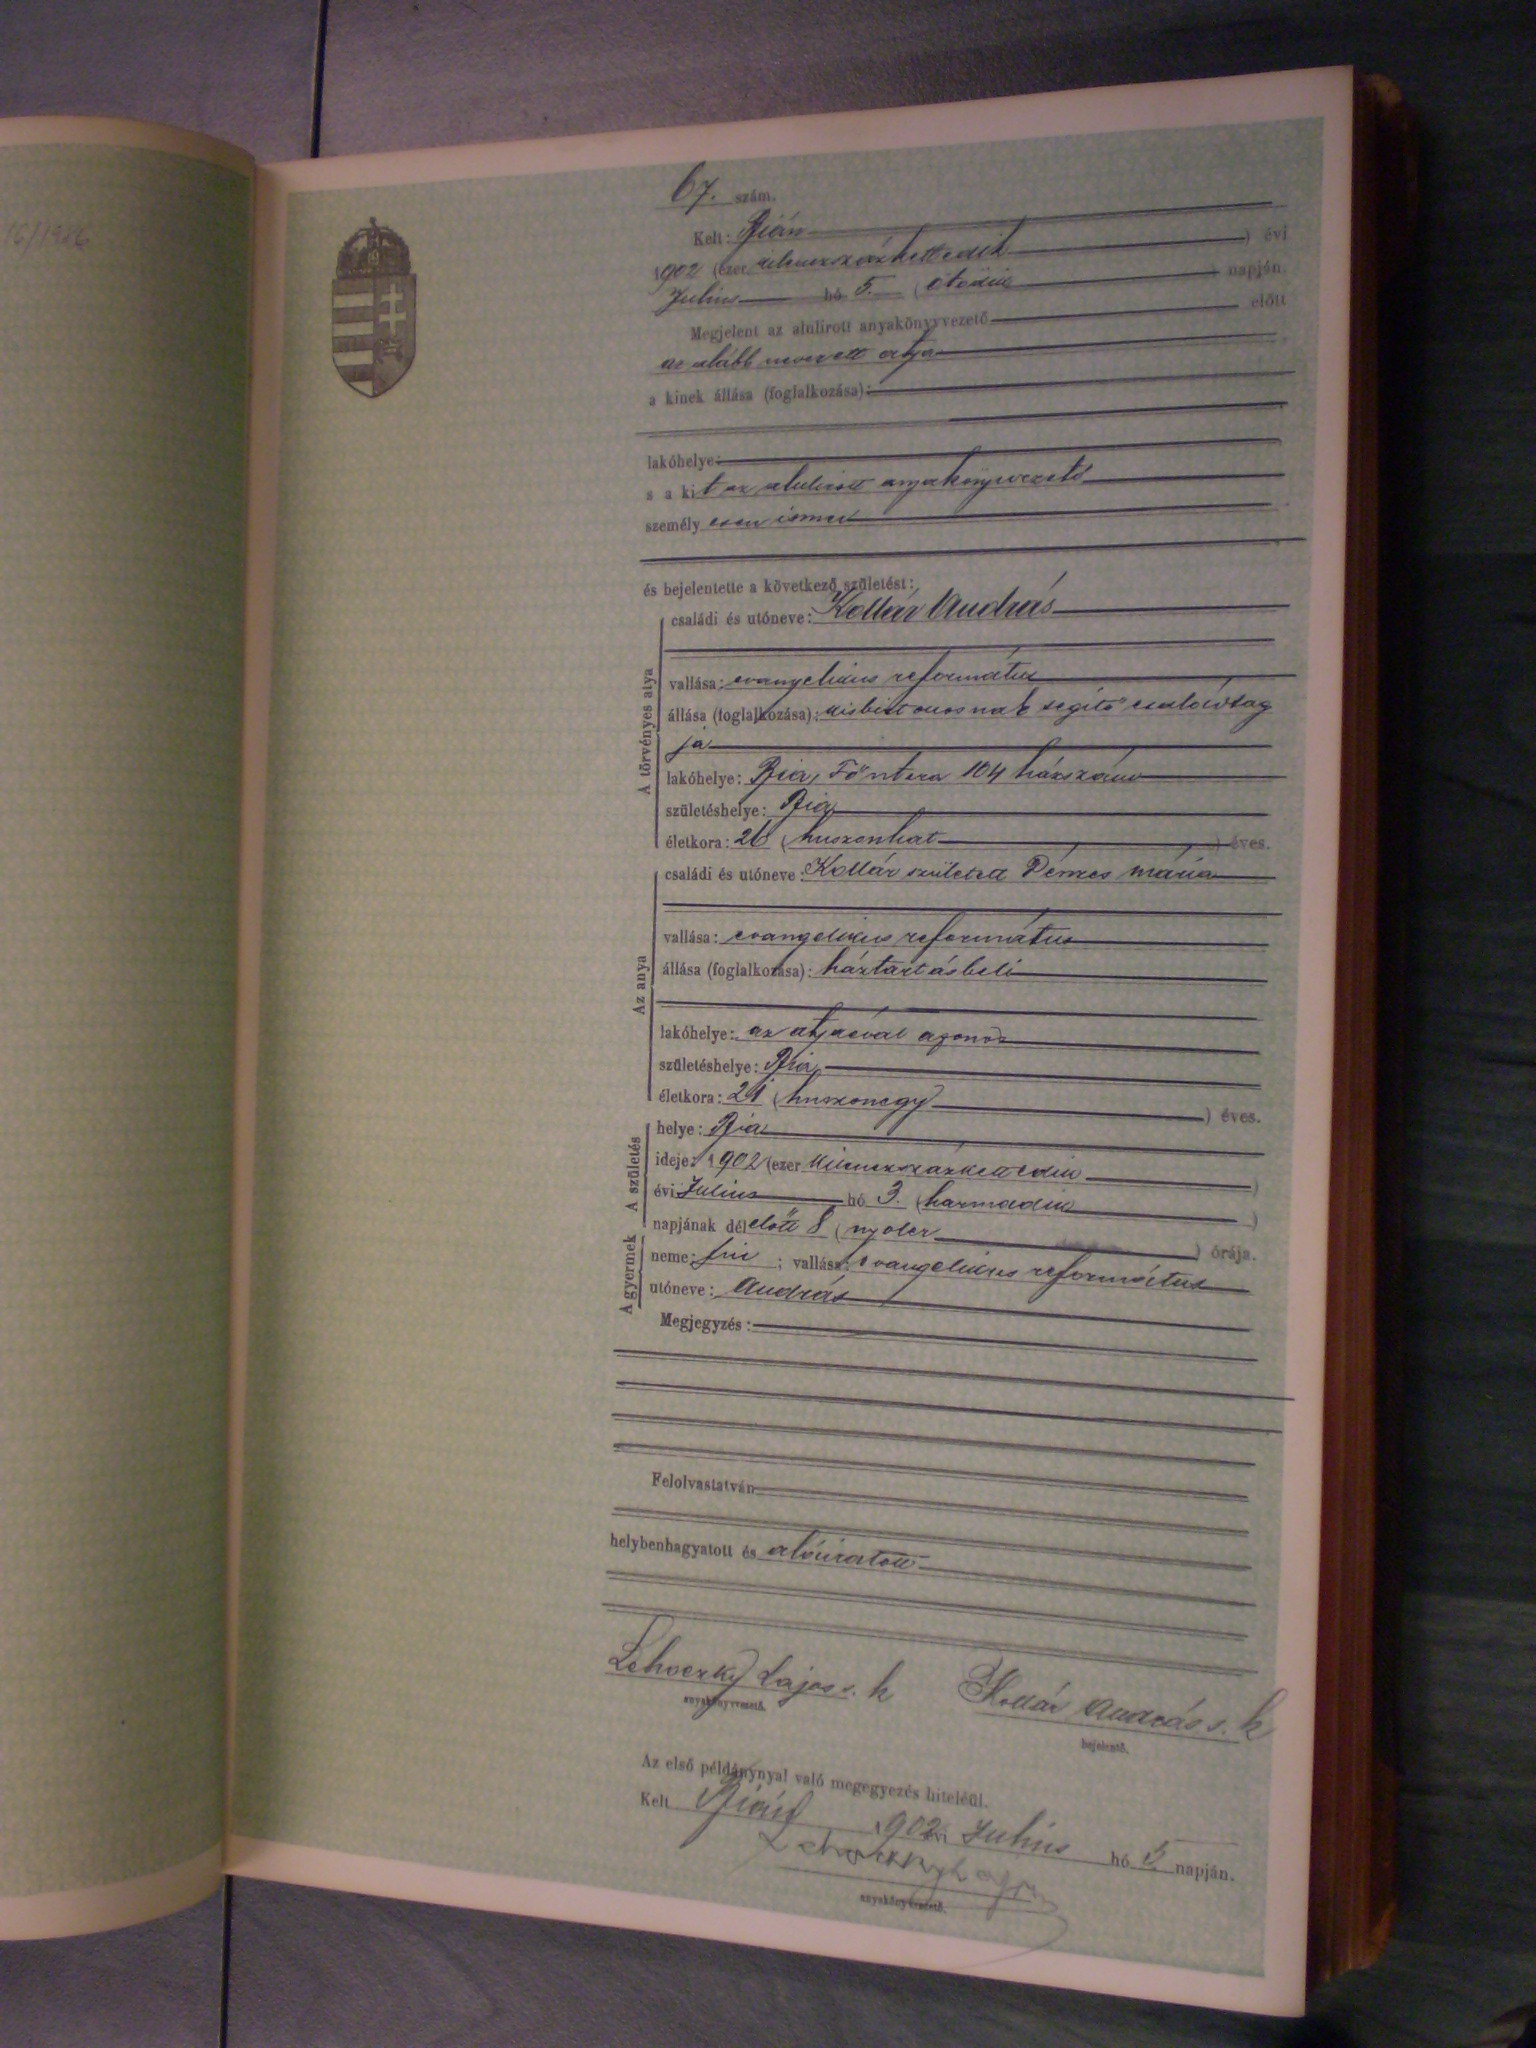 16/1916
67. szám.
Kelt: Bián
1902 (ezer kilenczszázkettedik) évi
Julius hó 5. (ötödik) napján.
Megjelent az alulirott anyakönyvvezető előtt
az alább nevezett atya
a kinek állása (foglalkozása):
lakóhelye:
s a kit az alulirott anyakönyvvezető
személyesen ismer
és bejelentette a következő születést:
A törvényes atya
családi és utóneve: Kollár András
vallása: evangelikus református
állása (foglalkozása): kisbirtokosnak segítő családtag
ja
lakóhelye: Bia, Fő utcza 104 házszám
születéshelye: Bia
életkora: 26 (huszonhat) éves.
Az anya
családi és utóneve: Kollár született Pénzes Mária
vallása: evangelikus református
állása (foglalkozása): háztartásbeli
lakóhelye: az atyáéval azonos
születéshelye: Bia
életkora: 21 (huszonegy) éves.
A születés
helye: Bia
ideje: 1902 (ezer kilenczszázkettedik)
évi Julius hó 3. (harmadik)
napjának délelőtt 8 (nyolcz) órája.
A gyermek
neme: fiu; vallása: evangelikus református
utóneve: András
Megjegyzés:
Felolvastatván
helybenhagyatott és aláiratott
Lehoczky Lajos s. k
anyakönyvvezető.
Kollár András s. k
bejelentő.
Az első példánynyal való megegyezés hiteléül.
Kelt Bián 1902 évi Julius hó 5 napján.
Lehoczky Lajos
anyakönyvvezető.